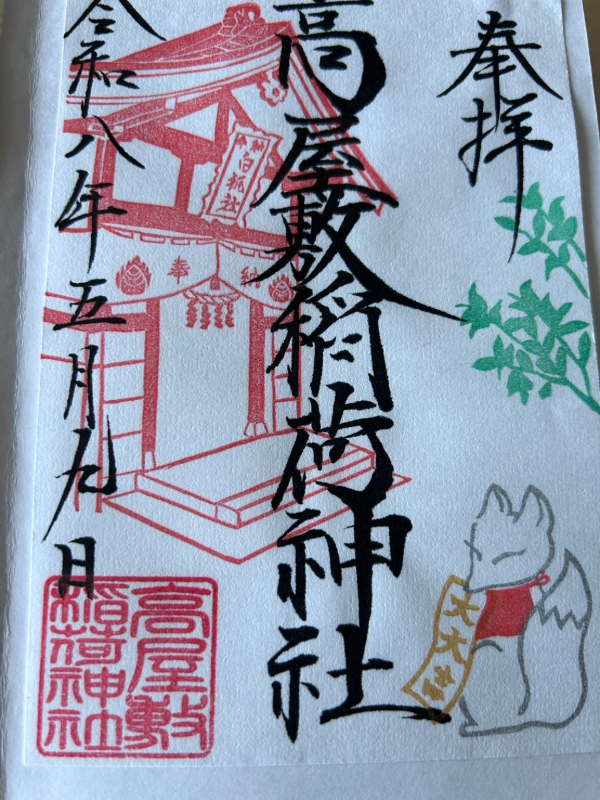 奉拝
高屋敷稲荷神社
令和八年五月九日
奉納
白狐社
奉納
大大吉
高屋敷
稲荷神社